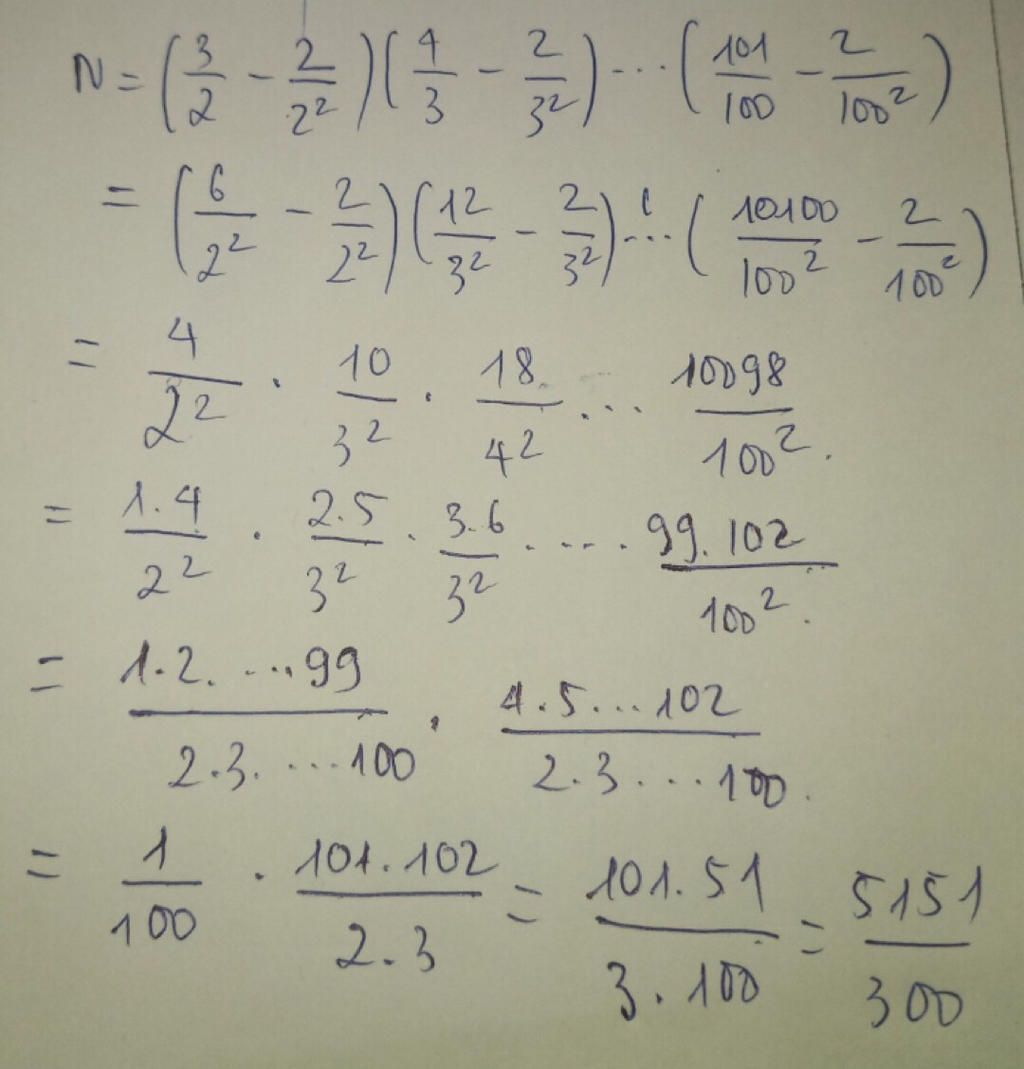 N = (3/2 - 2/2²)(4/3 - 2/3²)...(101/100 - 2/100²)
= (6/2² - 2/2²)(12/3² - 2/3²)...(10100/100² - 2/100²)
= 4/2² . 10/3² . 18/4² ... 10098/100².
= 1.4/2² . 2.5/3² . 3.6/3² ..... 99.102/100².
= 1.2. ...99/2.3. ...100 . 4.5...102/2.3...100.
= 1/100 . 101.102/2.3 = 101.51/3.100 = 5151/300